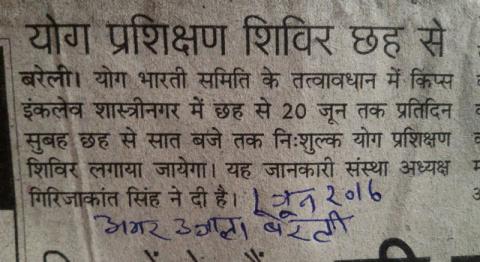 योग प्रशिक्षण शिविर छह से
बरेली। योग भारती समिति के तत्वावधान में किप्स
इंकलेव शास्त्रीनगर में छह से 20 जून तक प्रतिदिन
सुबह छह से सात बजे तक निःशुल्क योग प्रशिक्षण
शिविर लगाया जायेगा। यह जानकारी संस्था अध्यक्ष
गिरिजाकांत सिंह ने दी है। 1 जून 2016
अमर उजाला बरेली